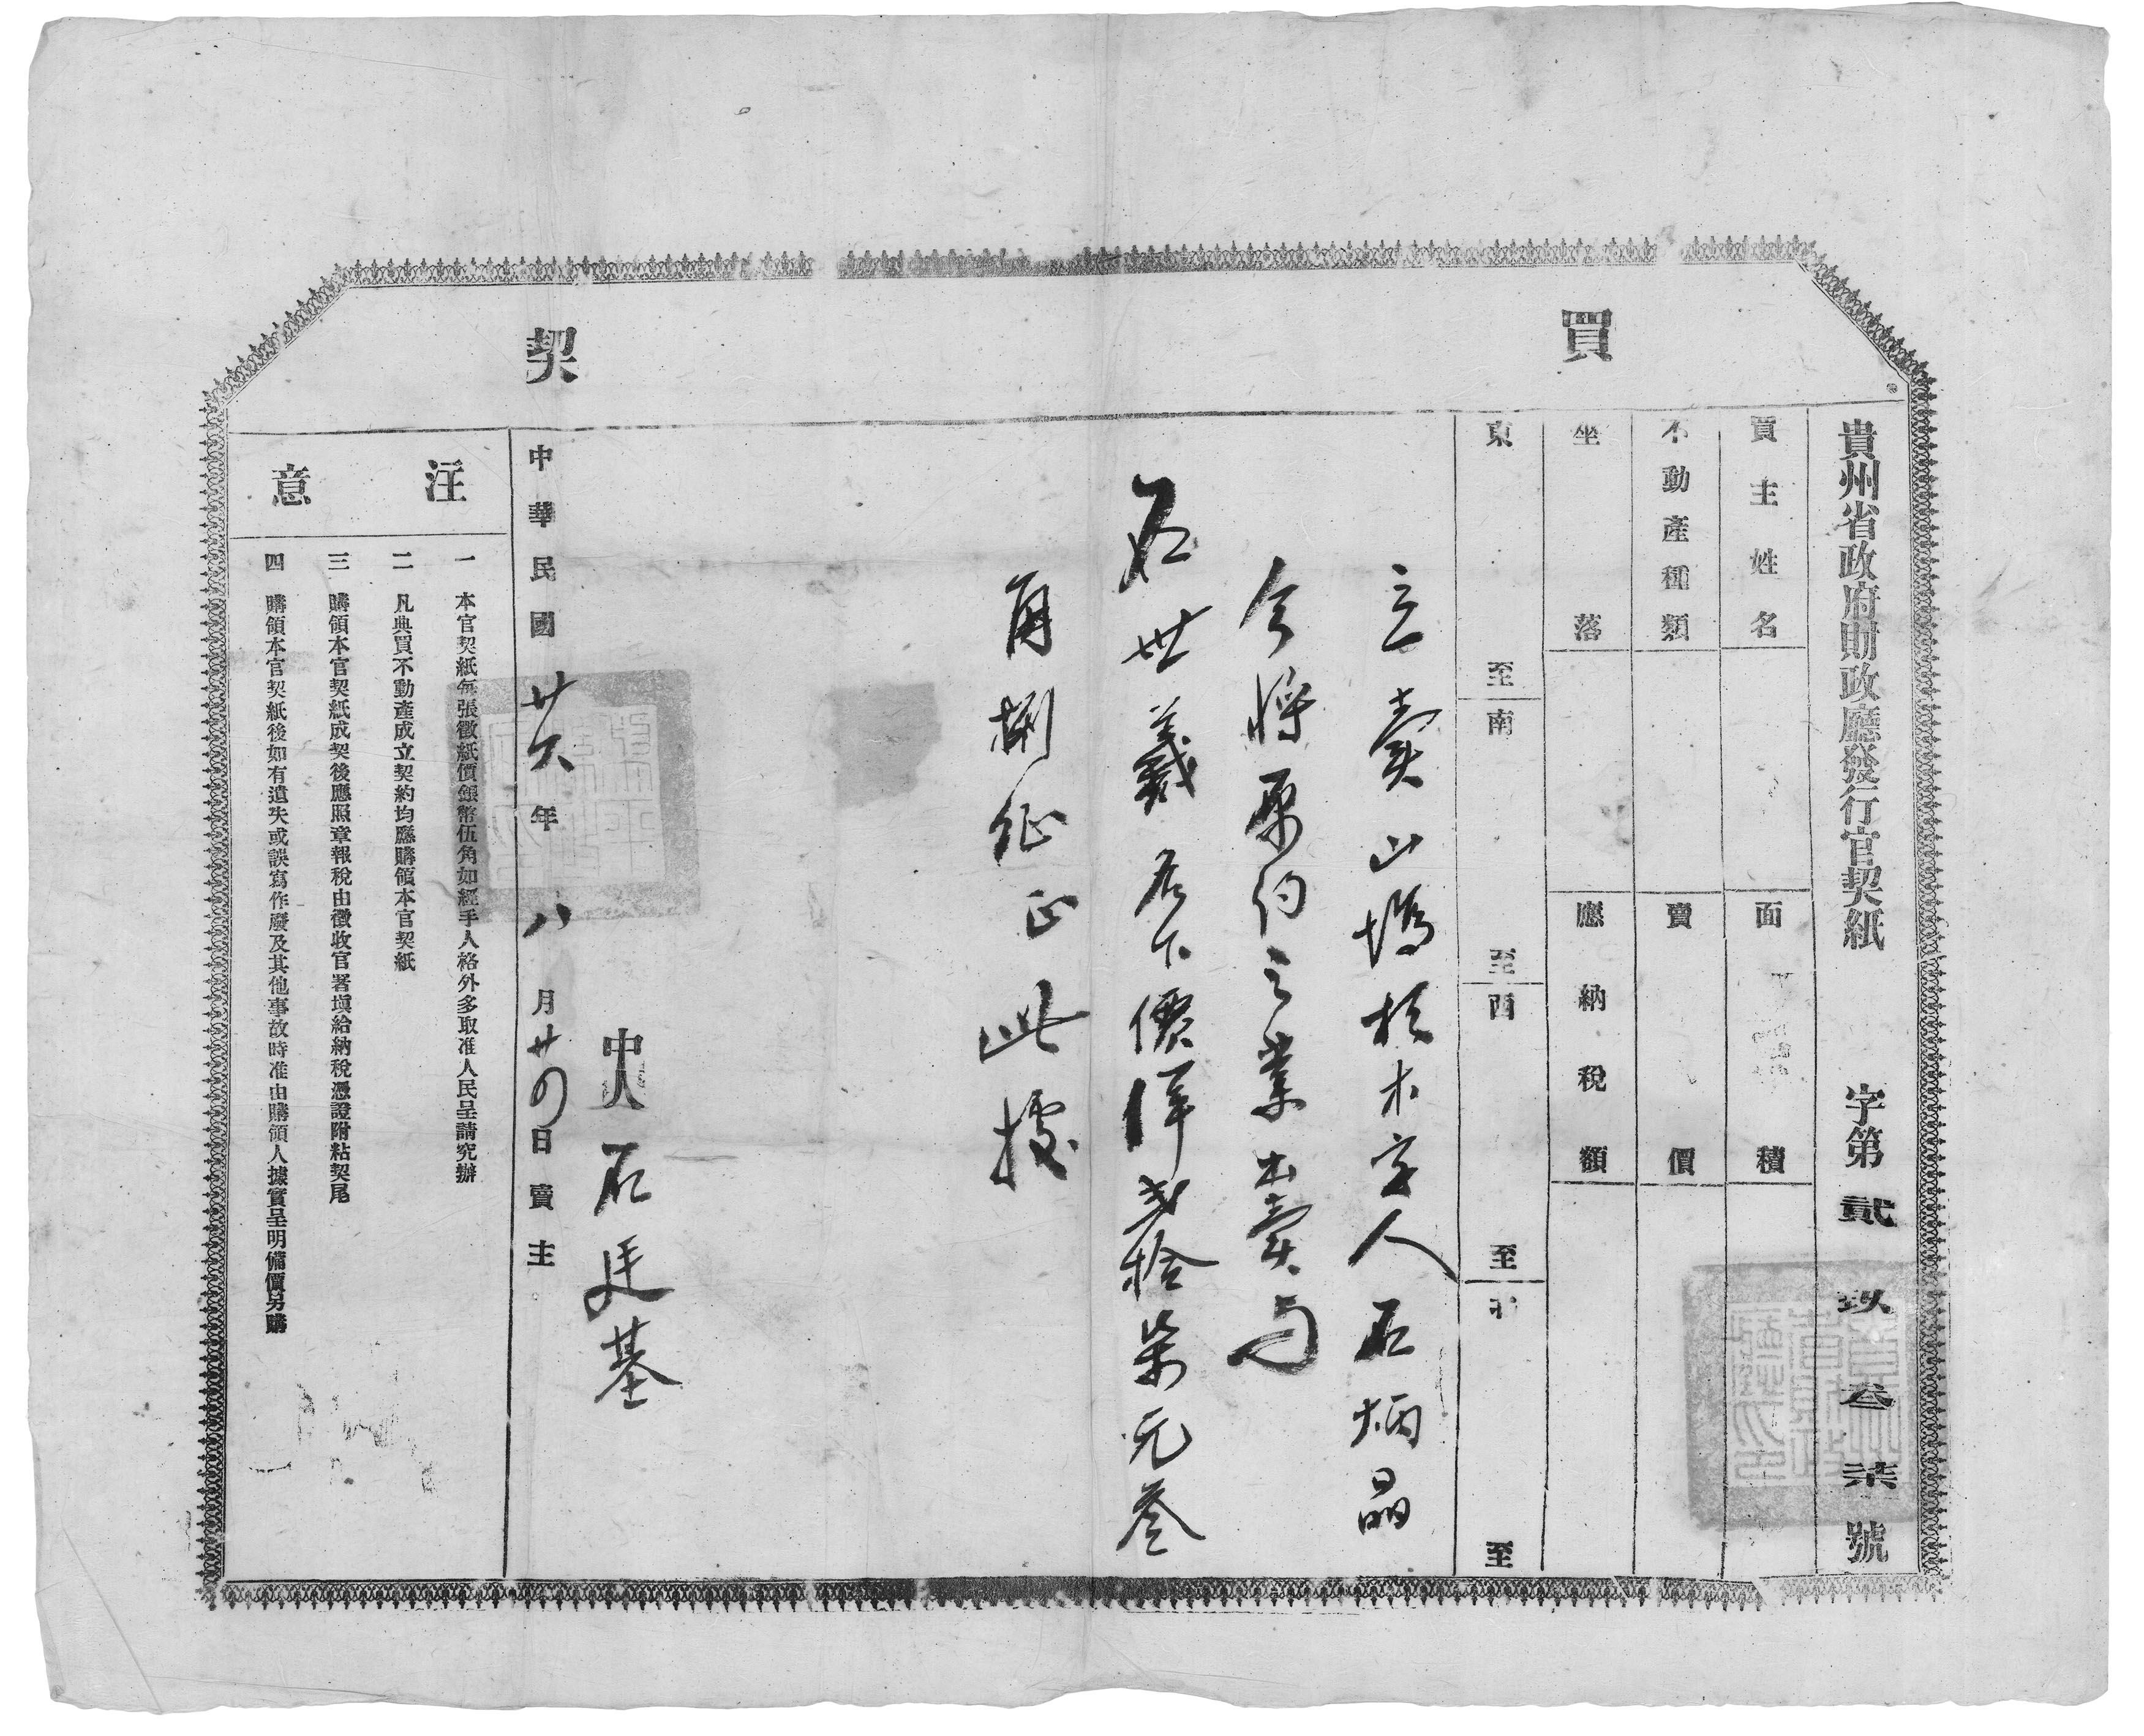 買契
貴州省政府財政廳發行官契紙 字第貳玖叁柒號
買主姓名 面積
不動產種類 賣價
坐落 應納稅額
東至 南至 西至 北至
立賣山塲杉木字人石炳晶
今將原約之業出賣與
石世義名下價洋貳拾柒元叁
角捌仙正此據
中人石廷基
中華民國廿六年八月廿四日賣主
注意
一 本官契紙每張徵紙價銀幣伍角如經手人格外多取准人民呈請究辦
二 凡典買不動產成立契約均應購領本官契紙
三 購領本官契紙成契後應照章報稅由徵收官署塡給納稅憑證附粘契尾
四 購領本官契紙後如有遺失或誤寫作廢及其他事故時准由購領人據實呈明備價另購